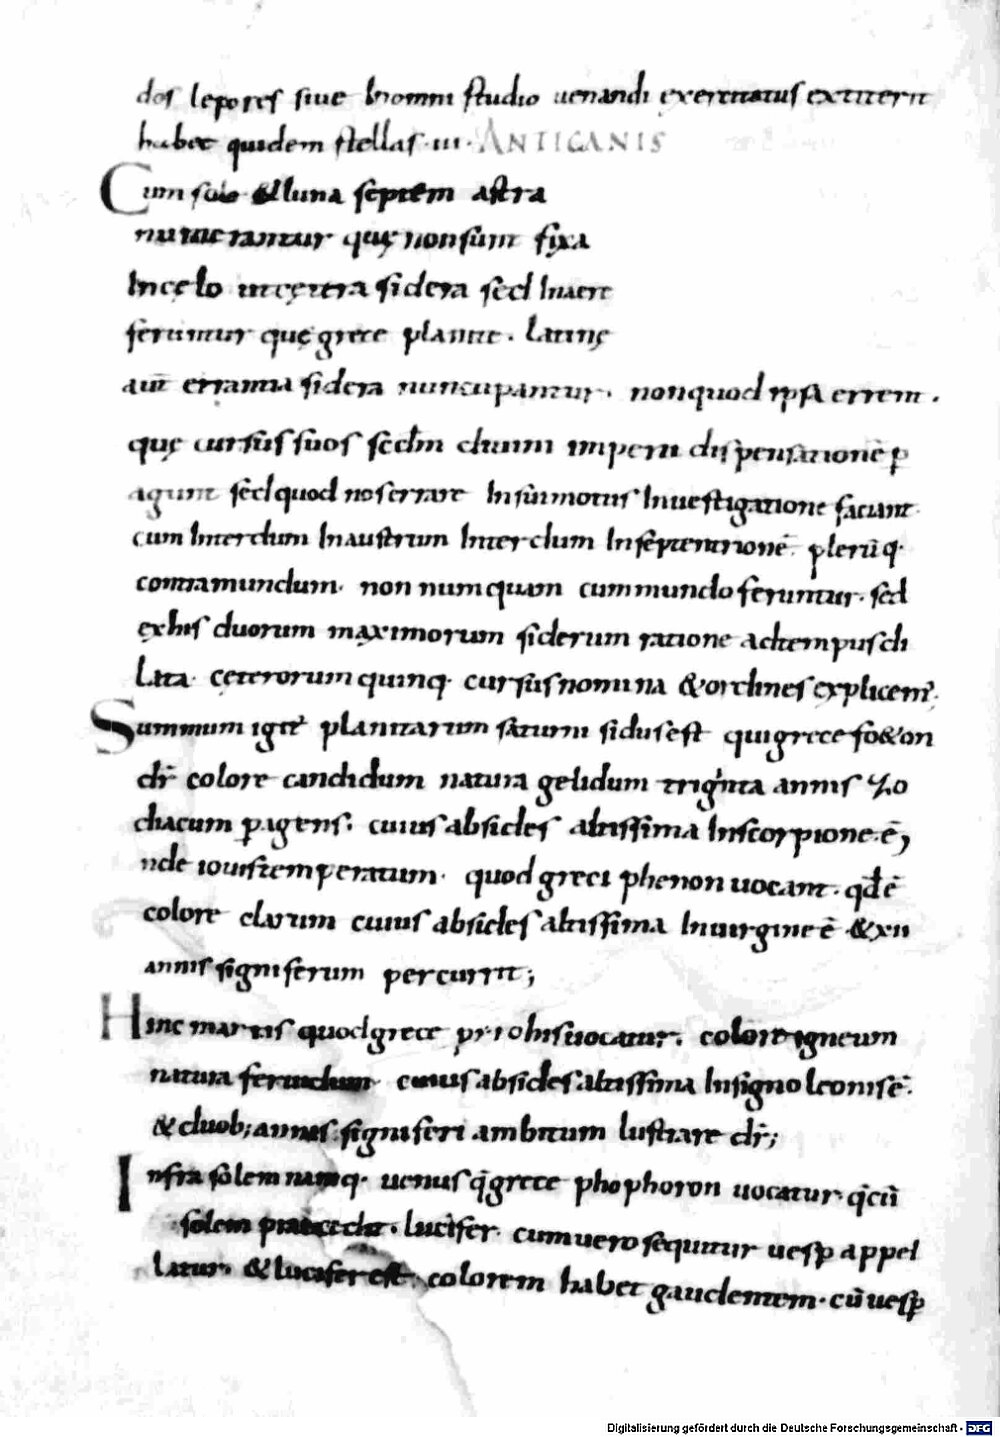 dos lepores siue In omni studio uenandi exercitatus extiterit
habet quidem stellas .iii. ANTICANIS
Cum sole & luna septem astra
numerantur quę non sunt fixa
In cęlo ut cętera sidera sed In aere
feruntur quę grece planite . latinę
aut̄ errantia sidera nuncupantur . non quod ipsa errent .
quę cursus suos scd̄m diuini imperii dispensationē p̱
agunt sed quod nos errare In sui motus Inuestigatione faciant .
cum Interdum In austrum Interdum In septentrionē . plerūq.
contra mundum . non numquam cum mundo feruntur . sed
ex his duorum maximorum siderum ratione ad tempus di
lata . cęterorum quinq. cursus nomina & ordines explicem̄ .
Summum igit̄ planitarum saturni sidus est qui grece fo&on
dr̄ colore candidum natura gelidum triginta annis zo
diacum p̱agens . cuius absides altissima In scorpione . ē ,
nde iouis temperatum . quod greci phenon uocant . qd̄ē
colore clarum cuius absides altissima In uirgine ē & xii
annis signiferum percurrit ;
Hinc martis quod grece pirohis uocatur . colore igneum
natura feruidum cuius absides altissima In signo leonis ē .
& duob; annis signiferi ambitum lustrare dr̄ ;
Infra solem namq. uenus q̄ grece phophoron uocatur . q̄ cū
solem praecedit . lucifer . cum uero sequitur uesp̱ appel
latur . & lucifer est . colorem habet gaudentem . cū uesp̱